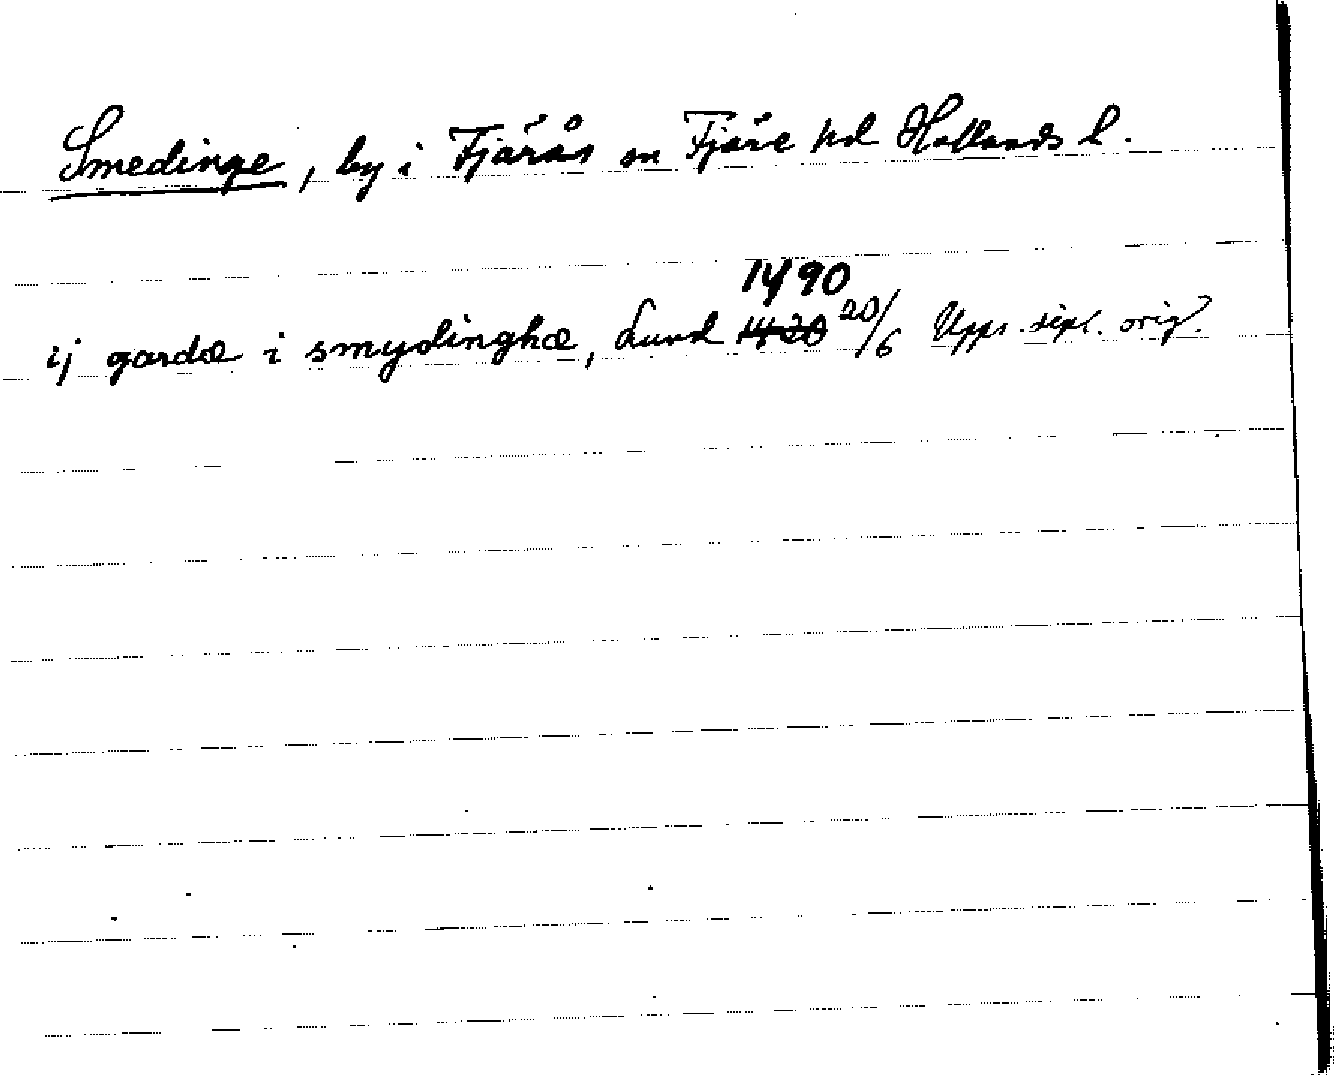 Smedinge, by i Fjärås sn Fjäre hd Hallands l.
1490
ij gardæ i smydinghæ, Lund 1420 20/6 Upps. dipl. orig.